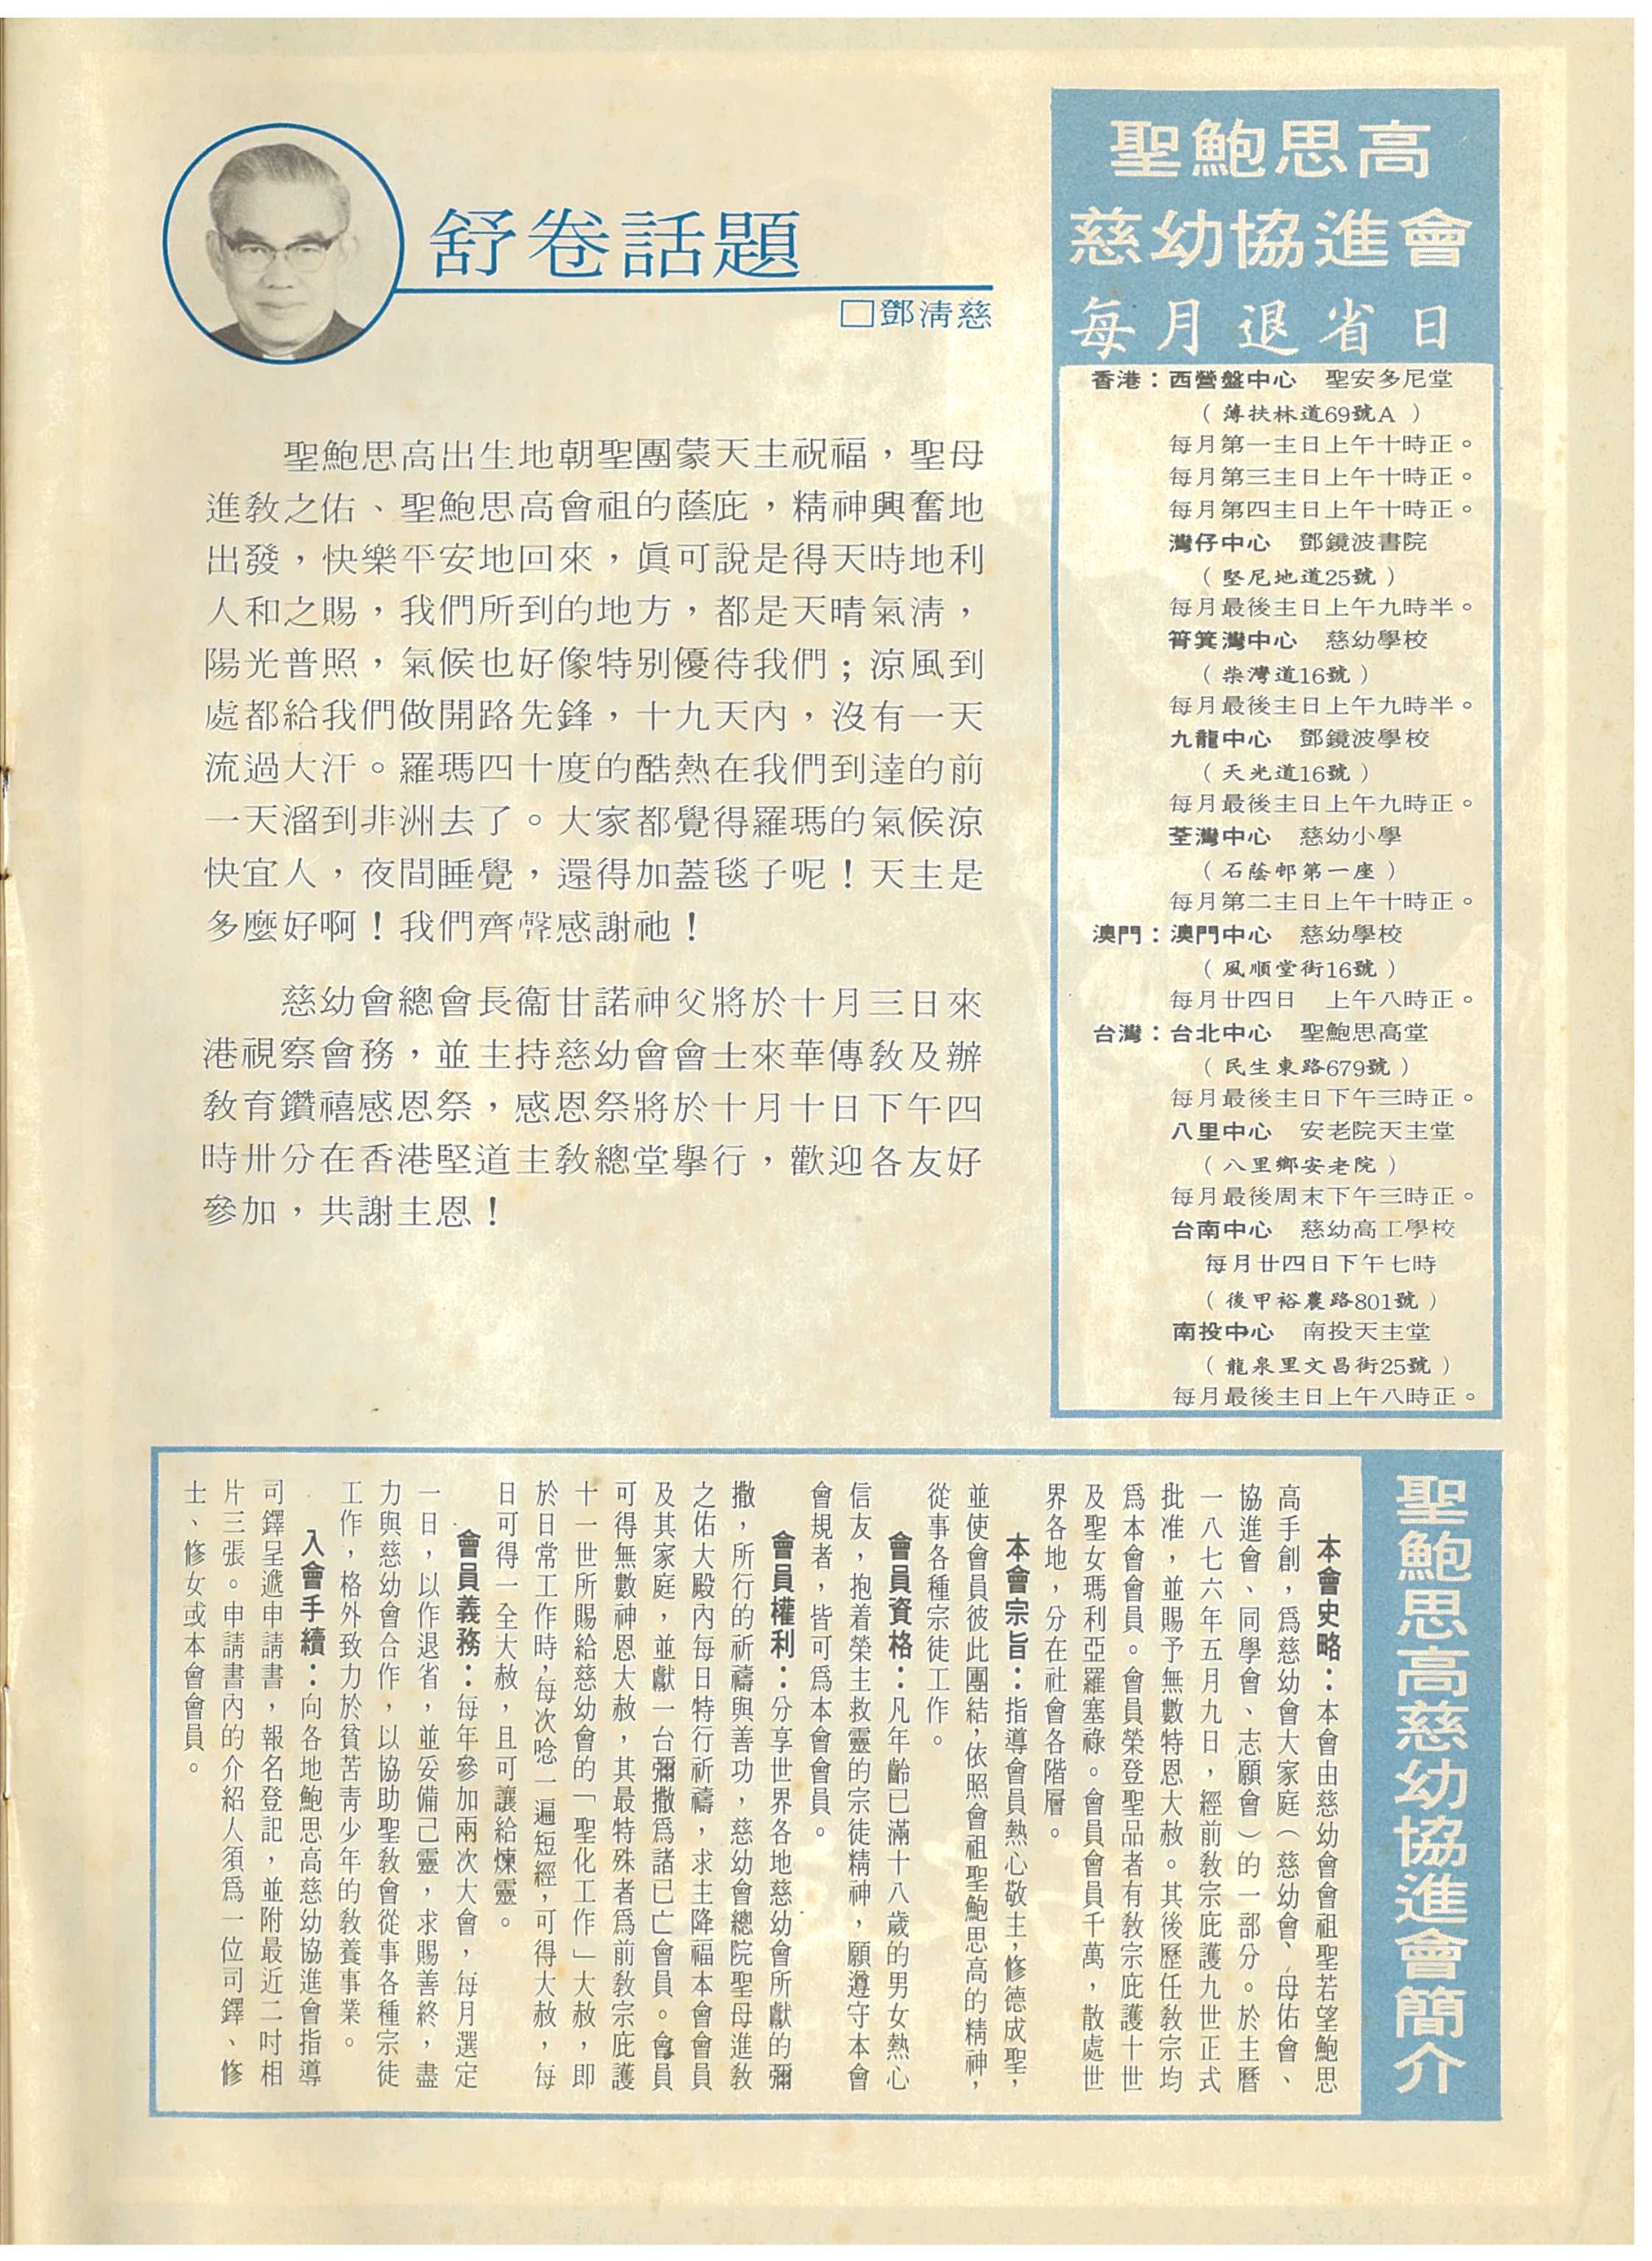 舒卷話題
□鄧淸慈
聖鮑思高出生地朝聖團蒙天主祝福，聖母
進敎之佑、聖鮑思高會祖的蔭庇，精神興奮地
出發，快樂平安地回來，眞可說是得天時地利
人和之賜，我們所到的地方，都是天晴氣淸，
陽光普照，氣候也好像特別優待我們；涼風到
處都給我們做開路先鋒，十九天內，沒有一天
流過大汗。羅瑪四十度的酷熱在我們到達的前
一天溜到非洲去了。大家都覺得羅瑪的氣候涼
快宜人，夜間睡覺，還得加蓋毯子呢！天主是
多麼好啊！我們齊聲感謝祂！
慈幼會總會長衞甘諾神父將於十月三日來
港視察會務，並主持慈幼會會士來華傳敎及辦
敎育鑽禧感恩祭，感恩祭將於十月十日下午四
時卅分在香港堅道主敎總堂擧行，歡迎各友好
參加，共謝主恩！
聖鮑思高
慈幼協進會
每月退省日
香港：西營盤中心　聖安多尼堂
（薄扶林道69號A）
每月第一主日上午十時正。
每月第三主日上午十時正。
每月第四主日上午十時正。
灣仔中心　鄧鏡波書院
（堅尼地道25號）
每月最後主日上午九時半。
筲箕灣中心　慈幼學校
（柴灣道16號）
每月最後主日上午九時半。
九龍中心　鄧鏡波學校
（天光道16號）
每月最後主日上午九時正。
荃灣中心　慈幼小學
（石蔭邨第一座）
每月第二主日上午十時正。
澳門：澳門中心　慈幼學校
（風順堂街16號）
每月廿四日　上午八時正。
台灣：台北中心　聖鮑思高堂
（民生東路679號）
每月最後主日下午三時正。
八里中心　安老院天主堂
（八里鄉安老院）
每月最後周末下午三時正。
台南中心　慈幼高工學校
每月廿四日下午七時
（後甲裕農路801號）
南投中心　南投天主堂
（龍泉里文昌街25號）
每月最後主日上午八時正。
聖鮑思高慈幼協進會簡介
本會史略：本會由慈幼會會祖聖若望鮑思
高手創，爲慈幼會大家庭（慈幼會、母佑會、
協進會、同學會、志願會）的一部分。於主曆
一八七六年五月九日，經前敎宗庇護九世正式
批准，並賜予無數特恩大赦。其後歷任敎宗均
爲本會會員。會員榮登聖品者有敎宗庇護十世
及聖女瑪利亞羅塞祿。會員會員千萬，散處世
界各地，分在社會各階層。
本會宗旨：指導會員熱心敬主，修德成聖，
並使會員彼此團結，依照會祖聖鮑思高的精神，
從事各種宗徒工作。
會員資格：凡年齡已滿十八歲的男女熱心
信友，抱着榮主救靈的宗徒精神，願遵守本會
會規者，皆可爲本會會員。
會員權利：分享世界各地慈幼會所獻的彌
撒，所行的祈禱與善功，慈幼會總院聖母進敎
之佑大殿內每日特行祈禱，求主降福本會會員
及其家庭，並獻一台彌撒爲諸已亡會員。會員
可得無數神恩大赦，其最特殊者爲前敎宗庇護
十一世所賜給慈幼會的「聖化工作」大赦，即
於日常工作時，每次唸一遍短經，可得大赦，每
日可得一全大赦，且可讓給煉靈。
會員義務：每年參加兩次大會，每月選定
一日，以作退省，並妥備己靈，求賜善終，盡
力與慈幼會合作，以協助聖敎會從事各種宗徒
工作，格外致力於貧苦靑少年的敎養事業。
入會手續：向各地鮑思高慈幼協進會指導
司鐸呈遞申請書，報名登記，並附最近二吋相
片三張。申請書內的介紹人須爲一位司鐸、修
士、修女或本會會員。